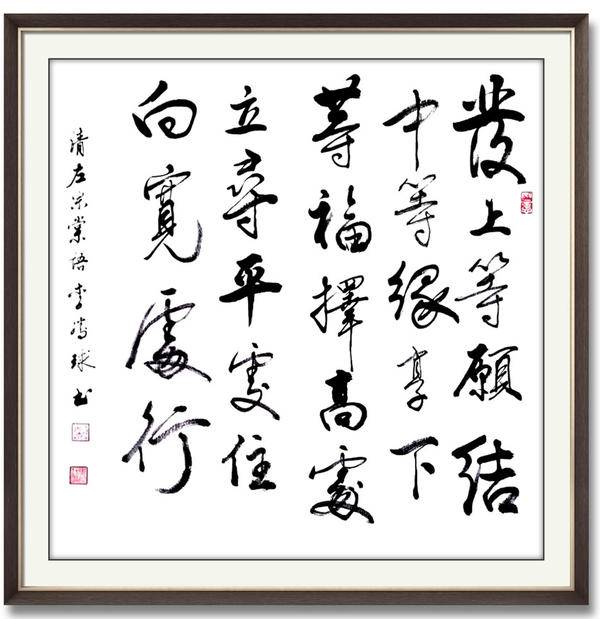 發上等願結
中等緣享下
等福擇高處
立尋平處住
向寬處行
清左宗棠語李球書